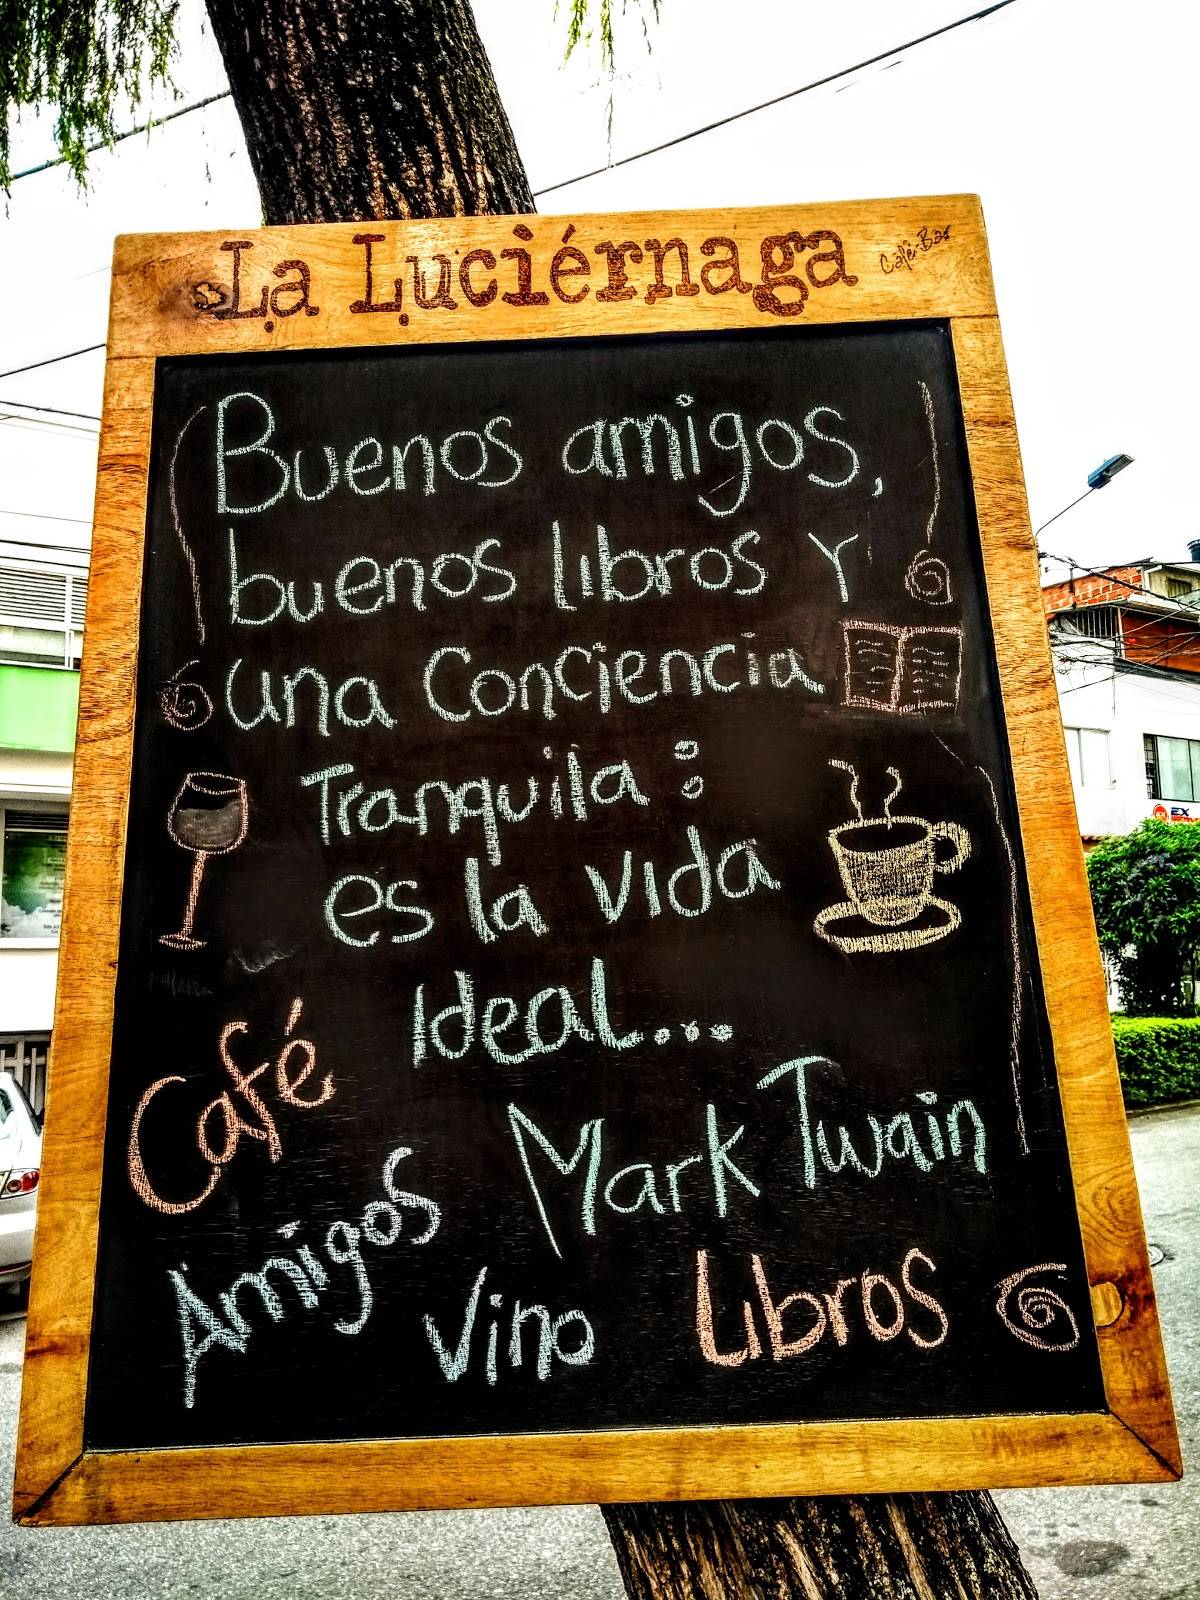 La Luciérnaga
Café-Bar
Buenos amigos,
buenos libros y
una Conciencia
Tranquila:
es la vida
Ideal...
Café
Mark Twain
Amigos
Vino
Libros
EX